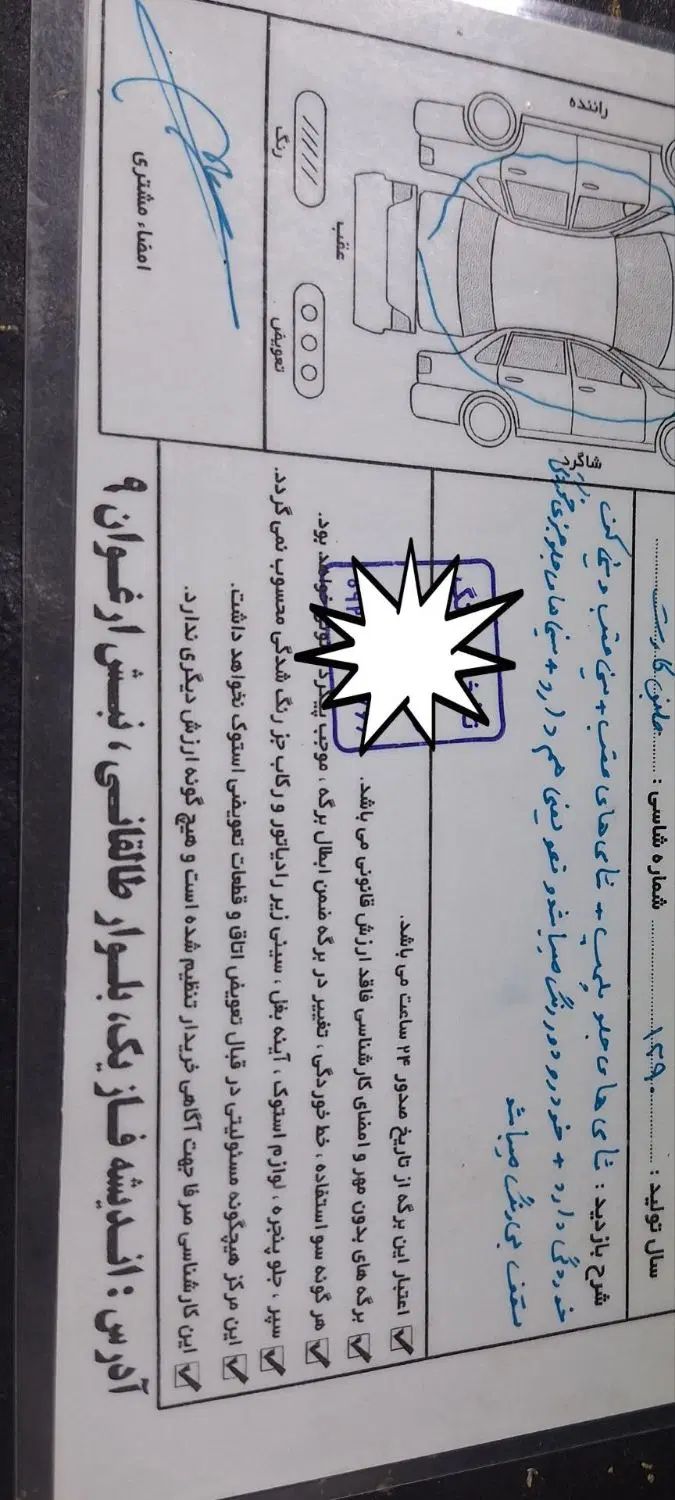 سال تولید : ۱۳۹۰ شماره شاسی :
شرح بازدید : شاسی های جلو پلمپ + شاسی های عقب + سینی عقب و سینی کف
خوردگی دارد + خودرو دور رنگ میباشد و تعویضی هم دارد + سینی های جلو جزئی خوردگی
سقف بی رنگ میباشد
راننده
شاگرد
عقب
رنگ
تعویض
امضاء مشتری
اعتبار این برگه از تاریخ صدور ۲۴ ساعت می باشد.
برگه های بدون مهر و امضای کارشناسی فاقد ارزش قانونی می باشد.
هر گونه سو استفاده ، خط خوردگی ، تغییر در برگه ضمن ابطال برگه ، موجب پیگرد خواهد بود.
سپر ، جلو پنجره ، لوازم استوک ، آینه بغل ، سینی زیر رادیاتور و رکاب جز رنگ شدگی محسوب نمی گردد.
این مرکز هیچگونه مسئولیتی در قبال تعویض اتاق و قطعات تعویضی استوک نخواهد داشت.
این کارشناسی صرفا جهت آگاهی خریدار تنظیم شده است و هیچ گونه ارزش دیگری ندارد.
آدرس : اندیشه فاز یک، بلوار طالقانی ، نبش ارغوان ۹